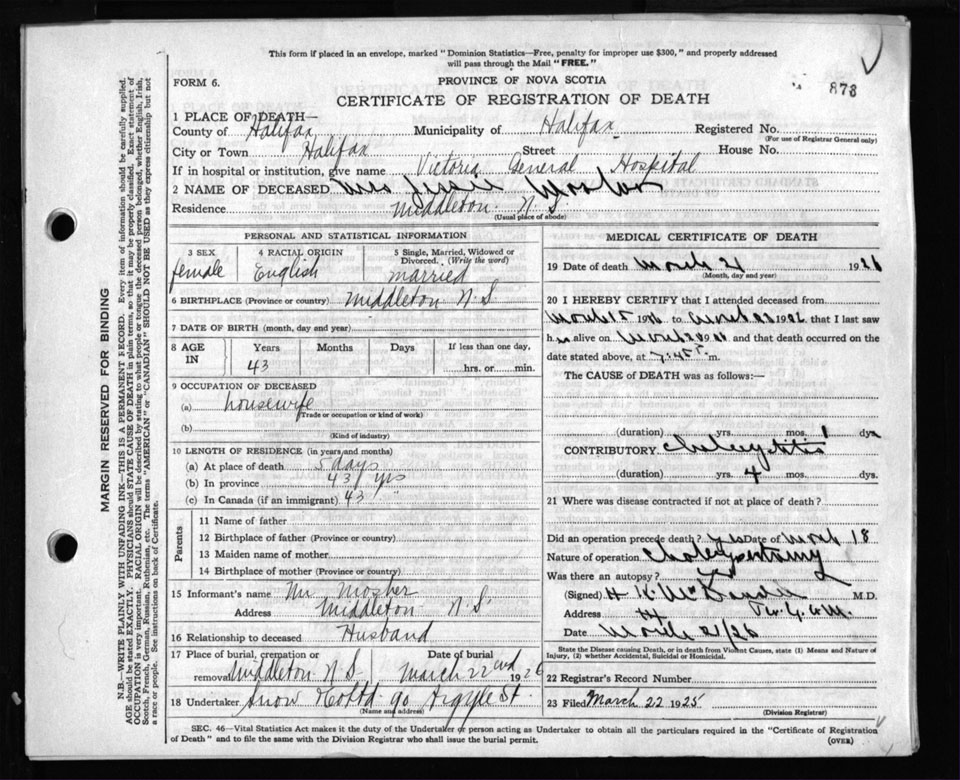 This form if placed in an envelope, marked "Dominion Statistics—Free, penalty for improper use $300," and properly addressed
will pass through the Mail "FREE."
FORM 6.
PROVINCE OF NOVA SCOTIA
873
CERTIFICATE OF REGISTRATION OF DEATH
1 PLACE OF DEATH—
County of Halifax Municipality of Halifax Registered No.
(For use of Registrar General only)
City or Town Halifax Street House No.
If in hospital or institution, give name Victoria General Hospital
2 NAME OF DECEASED Mrs Jessie Mosher
Residence Middleton N.S.
(Usual place of abode)
PERSONAL AND STATISTICAL INFORMATION
3 SEX
female
4 RACIAL ORIGIN
English
5 Single, Married, Widowed or
Divorced. (Write the word)
married
6 BIRTHPLACE (Province or country) Middleton N.S
7 DATE OF BIRTH (month, day and year)
8 AGE
IN
Years Months Days If less than one day,
43
hrs. or min.
9 OCCUPATION OF DECEASED
(a) housewife
(Trade or occupation or kind of work)
(b)
(Kind of industry)
10 LENGTH OF RESIDENCE (in years and months)
(a) At place of death 5 days
(b) In province 43 yrs
(c) In Canada (if an immigrant) 43 "
Parents
11 Name of father
12 Birthplace of father (Province or country)
13 Maiden name of mother
14 Birthplace of mother (Province or country)
15 Informant's name Mr Mosher
Address Middleton N.S.
16 Relationship to deceased Husband
17 Place of burial, cremation or Date of burial
removal Middleton N.S. March 22nd 1926
18 Undertaker Snow & Co Ltd 90 Argyle St
(Name and address)
MEDICAL CERTIFICATE OF DEATH
19 Date of death March 21 1926
(Month, day and year)
20 I HEREBY CERTIFY that I attended deceased from
March 15 1926 to 1926 that I last saw
h alive on and that death occurred on the
date stated above, at 7.45 P. m.
The CAUSE of DEATH was as follows:—
(duration) yrs. mos. 1 dys
CONTRIBUTORY
(duration) yrs. 4 mos. dys.
21 Where was disease contracted if not at place of death?
Did an operation precede death? yes Date of March 18
Nature of operation
Was there an autopsy?
(Signed) M.D.
Address
Date March 21/26
State the Disease causing Death, or in death from Violent Causes, state (1) Means and Nature of
Injury, (2) whether Accidental, Suicidal or Homicidal.
22 Registrar's Record Number
23 Filed March 22 1925
(Division Registrar)
SEC. 46—Vital Statistics Act makes it the duty of the Undertaker or person acting as Undertaker to obtain all the particulars required in the "Certificate of Registration
of Death" and to file the same with the Division Registrar who shall issue the burial permit.
(OVER)
MARGIN RESERVED FOR BINDING
N.B.—WRITE PLAINLY WITH UNFADING INK—THIS IS A PERMANENT RECORD. Every item of information should be carefully supplied.
AGE should be stated EXACTLY. PHYSICIANS should STATE CAUSE OF DEATH in plain terms, so that it may be properly classified. Exact statement of
OCCUPATION is very important. RACIAL ORIGIN will be described by stating to what people or tongue the deceased person belonged, whether English, Irish,
Scotch, French, German, Russian, Ruthenian, etc. The terms "AMERICAN" or "CANADIAN" SHOULD NOT BE USED as they express citizenship but not
a race or people. See instructions on back of Certificate.